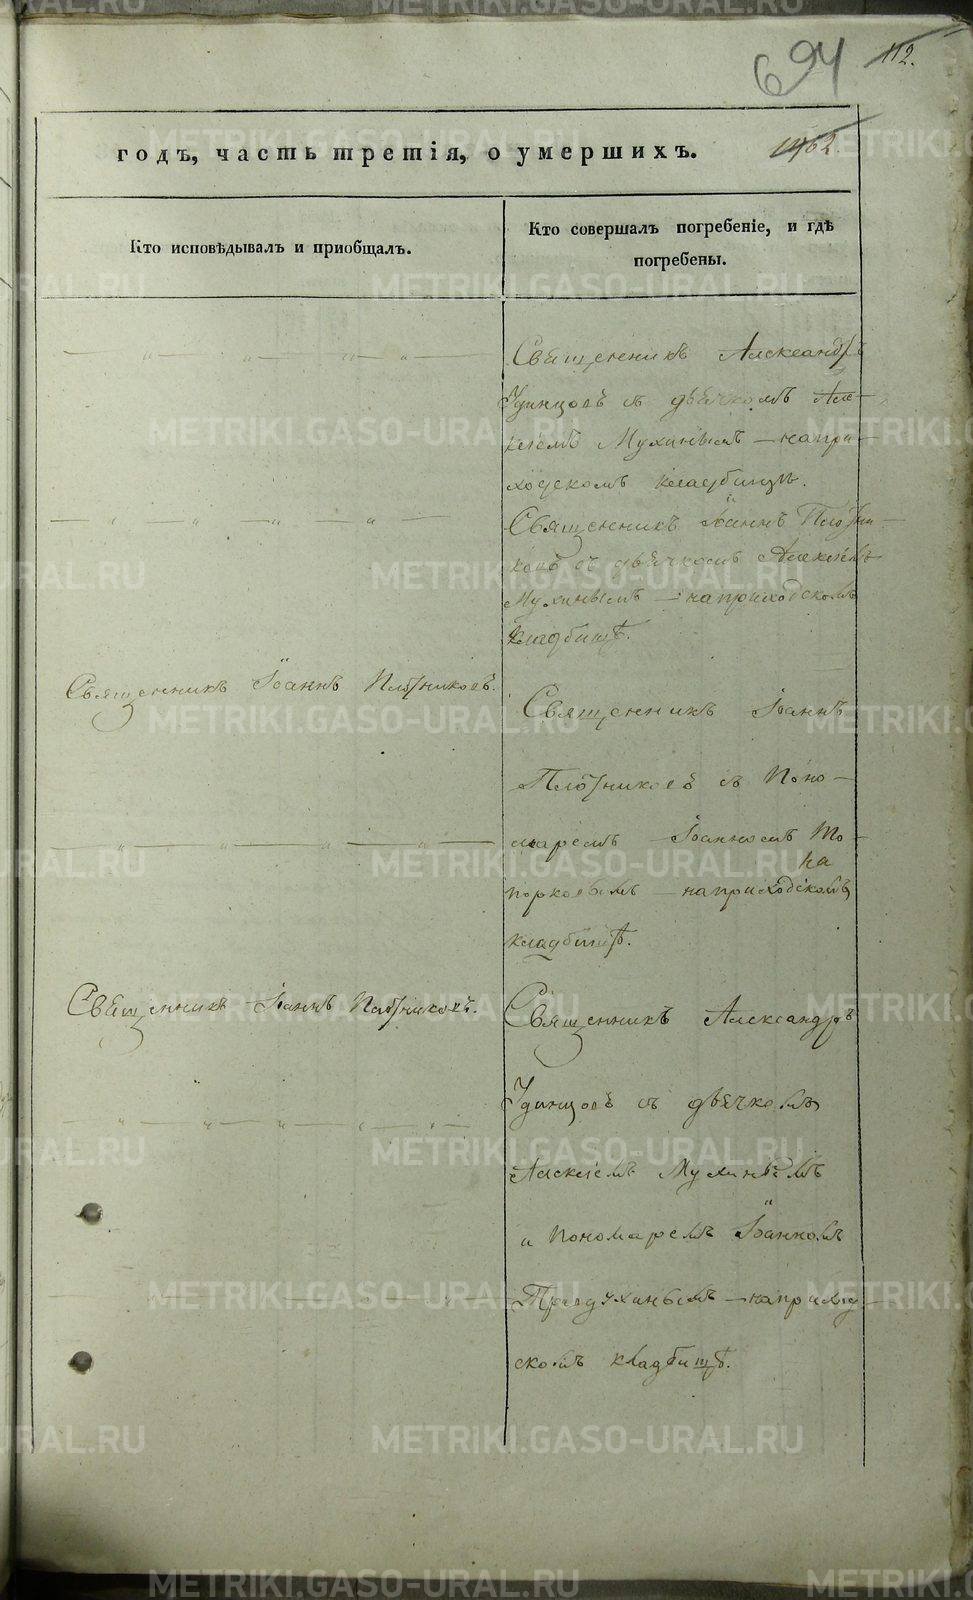 694
112.
годъ, часть третія, о умершихъ.
Кто исповѣдывалъ и приобщалъ.
Кто совершалъ погребеніе, и гдѣ
погребены.
Священникъ Александръ
Удинцовъ съ дьячкомъ Але-
ксѣемъ Мухинымъ – на при-
ходскомъ кладбищѣ.
Священникъ Іоаннъ Плотни-
ковъ съ дьячкомъ Алексѣемъ
Мухинымъ – на приходскомъ
кладбищѣ.
Священникъ Іоаннъ Плотниковъ.
Священникъ Іоаннъ
Плотниковъ съ Поно-
маремъ Іоанномъ То-
на
порковымъ – на приходскомъ
кладбищѣ.
Священникъ Іоаннъ Плотниковъ.
Священникъ Александръ
Удинцовъ съ дьячкомъ
Алексѣемъ Мухинымъ
и пономаремъ Іоанномъ
на приход
скомъ кладбищѣ.
METRIKI.GASO-URAL.RU